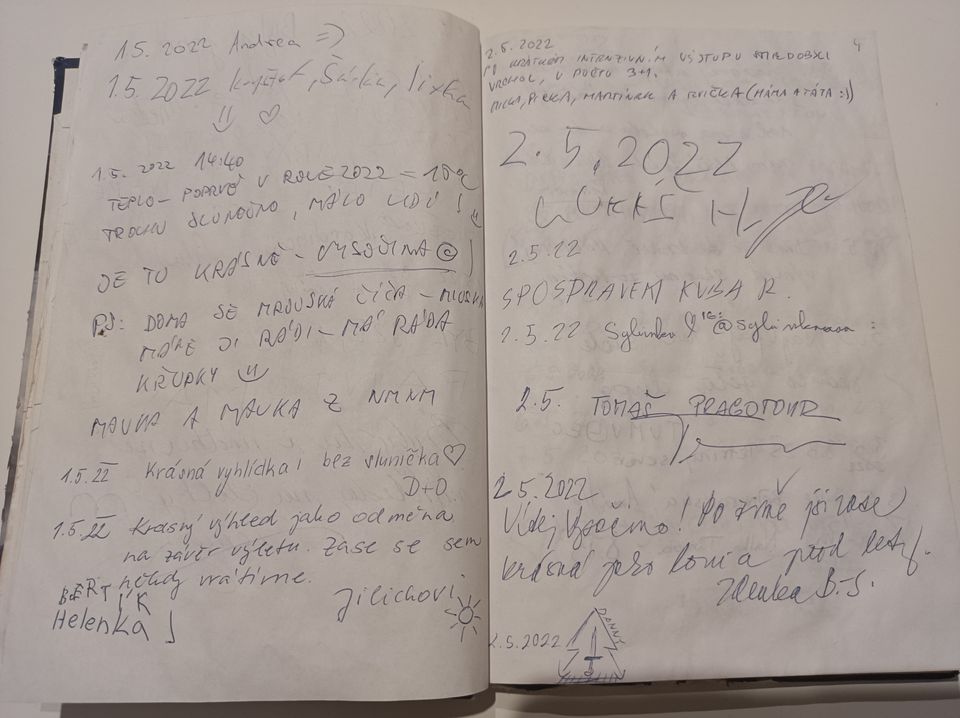 1.5. 2022 Andrea =)
1.5 2022 Kryštof, Šárka, Jixka
1.5. 2022 14:40
TEPLO – POPRVÉ V ROCE 2022 = 18°C
TROCHU SLUNEČNO, MÁLO LIDÍ !
JE TO KRÁSNĚ – VYSOČINA
PS: DOMA SE MROUSKÁ ČÍČA –
MÁME JI RÁDI – MÁ RÁDA
KŘUPKY
A MAVKA Z NMNM
1.5.22 Krásná vyhlídka i bez sluníčka ♡
D+D
1.5.22 Krásný výhled jako odměna
na závěr výletu. Zase se sem
někdy vrátíme.
Jilichovi
BERTÍK
Helenka
4
2.5.2022
PO KRÁTKÉM INTENZIVNÍM VÝSTUPU
VRCHOL, V POČTU 3+1.
MARTÍNEK A (MÁMA A TÁTA :))
2.5.2022
2.5.22
KUBA R.
2.5.22 Sylvinka IG:
2.5. TOMÁŠ PRAGOTOUR
2.5.2022
Vysočino! Po zimě jsi zase
krásná jako loni a před lety.
Zdenka B-S.
2.5.2022
DANNY